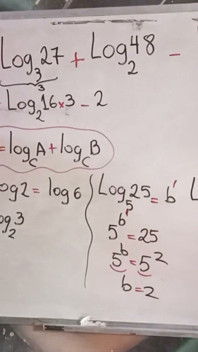 Log₃27 + Log₂48 -
3
Log₂16×3 - 2
= log_C A + log_C B
og2 = log6
og₂3
Log₅25 = b
5^b = 25
5^b = 5²
b = 2